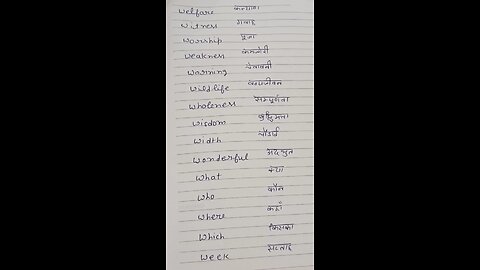 welfare कल्याण
witness गवाह
worship पूजा
weakness कमजोरी
warning चेतावनी
wildlife वन्यजीवन
wholeness सम्पूर्णता
wisdom बुद्धिमत्ता
width चौडाई
wonderful अदभुत
what क्या
who कौन
where कहाँ
which किसका
week सप्ताह